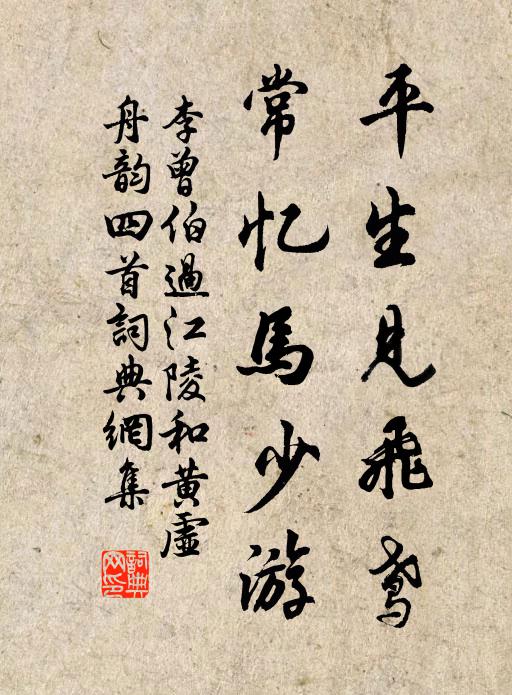 平生見飛鸢
常忆馬少游
李曾伯過江陵和黄虛
舟韵四首詞典網集
詞典
网印